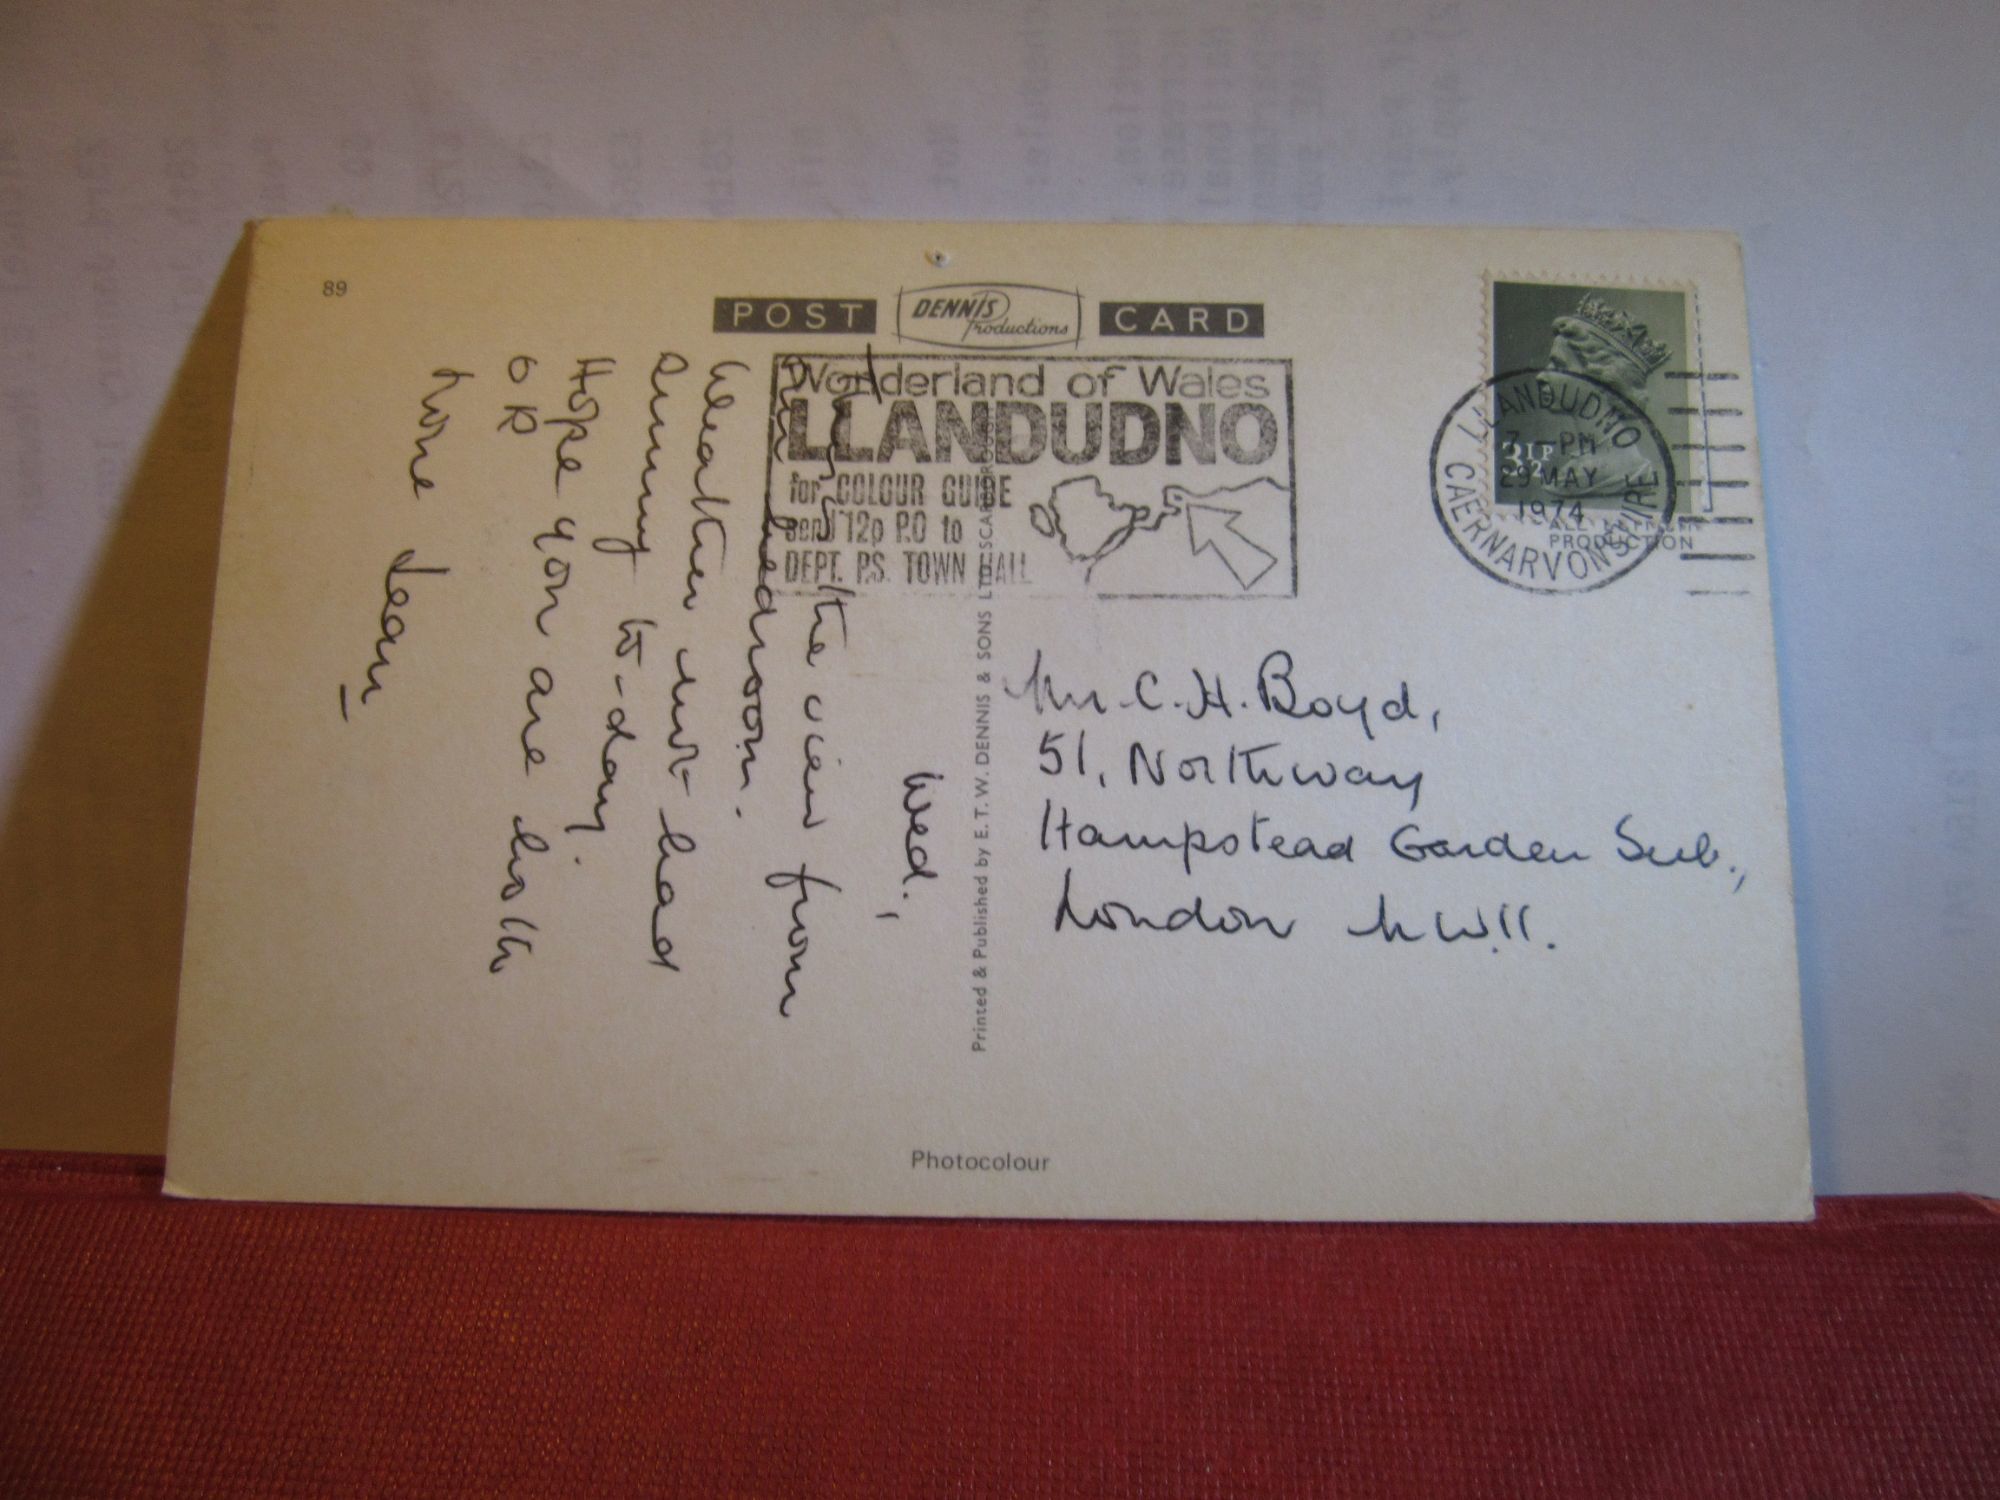 89
POST DENNIS Productions CARD
Wonderland of Wales
LLANDUDNO
for COLOUR GUIDE
send 12p P.O to
DEPT. P.S. TOWN HALL
LLANDUDNO
7 - PM
29 MAY
1974
CAERNARVONSHIRE
3½P
PRODUCTION
Wed.,
This is the view from
our bedroom.
Weather not bad
sunny to-day.
Hope you are both
OK
Love Jean
Printed & Published by E. T. W. DENNIS & SONS LTD. SCARBOROUGH
Mr. C. H. Boyd,
51, Northway
Hampstead Garden Sub.,
London N.W.11.
Photocolour